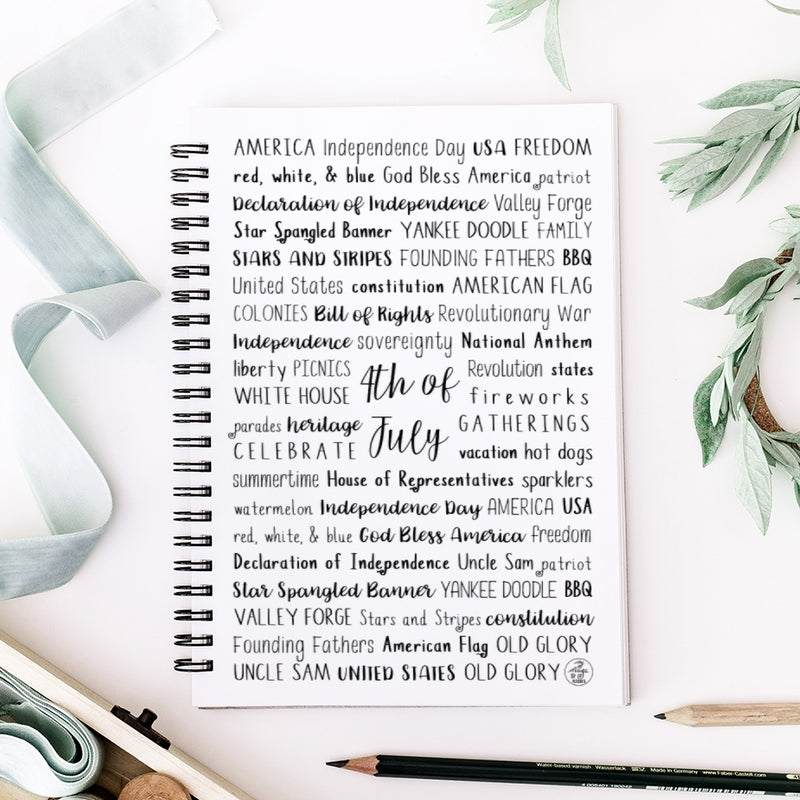 AMERICA Independence Day USA FREEDOM
red, white, & blue God Bless America patriot
Declaration of Independence Valley Forge
Star Spangled Banner YANKEE DOODLE FAMILY
STARS AND STRIPES FOUNDING FATHERS BBQ
United States constitution AMERICAN FLAG
COLONIES Bill of Rights Revolutionary War
Independence sovereignty National Anthem
liberty PICNICS Revolution states
WHITE HOUSE 4th of fireworks
parades heritage July GATHERINGS
CELEBRATE vacation hot dogs
summertime House of Representatives sparklers
watermelon Independence Day AMERICA USA
red, white, & blue God Bless America freedom
Declaration of Independence Uncle Sam patriot
Star Spangled Banner YANKEE DOODLE BBQ
VALLEY FORGE Stars and Stripes constitution
Founding Fathers American Flag OLD GLORY
UNCLE SAM UNITED STATES OLD GLORY
Water-based varnish Wasserlack Made in Germany www.Faber-Castell.com